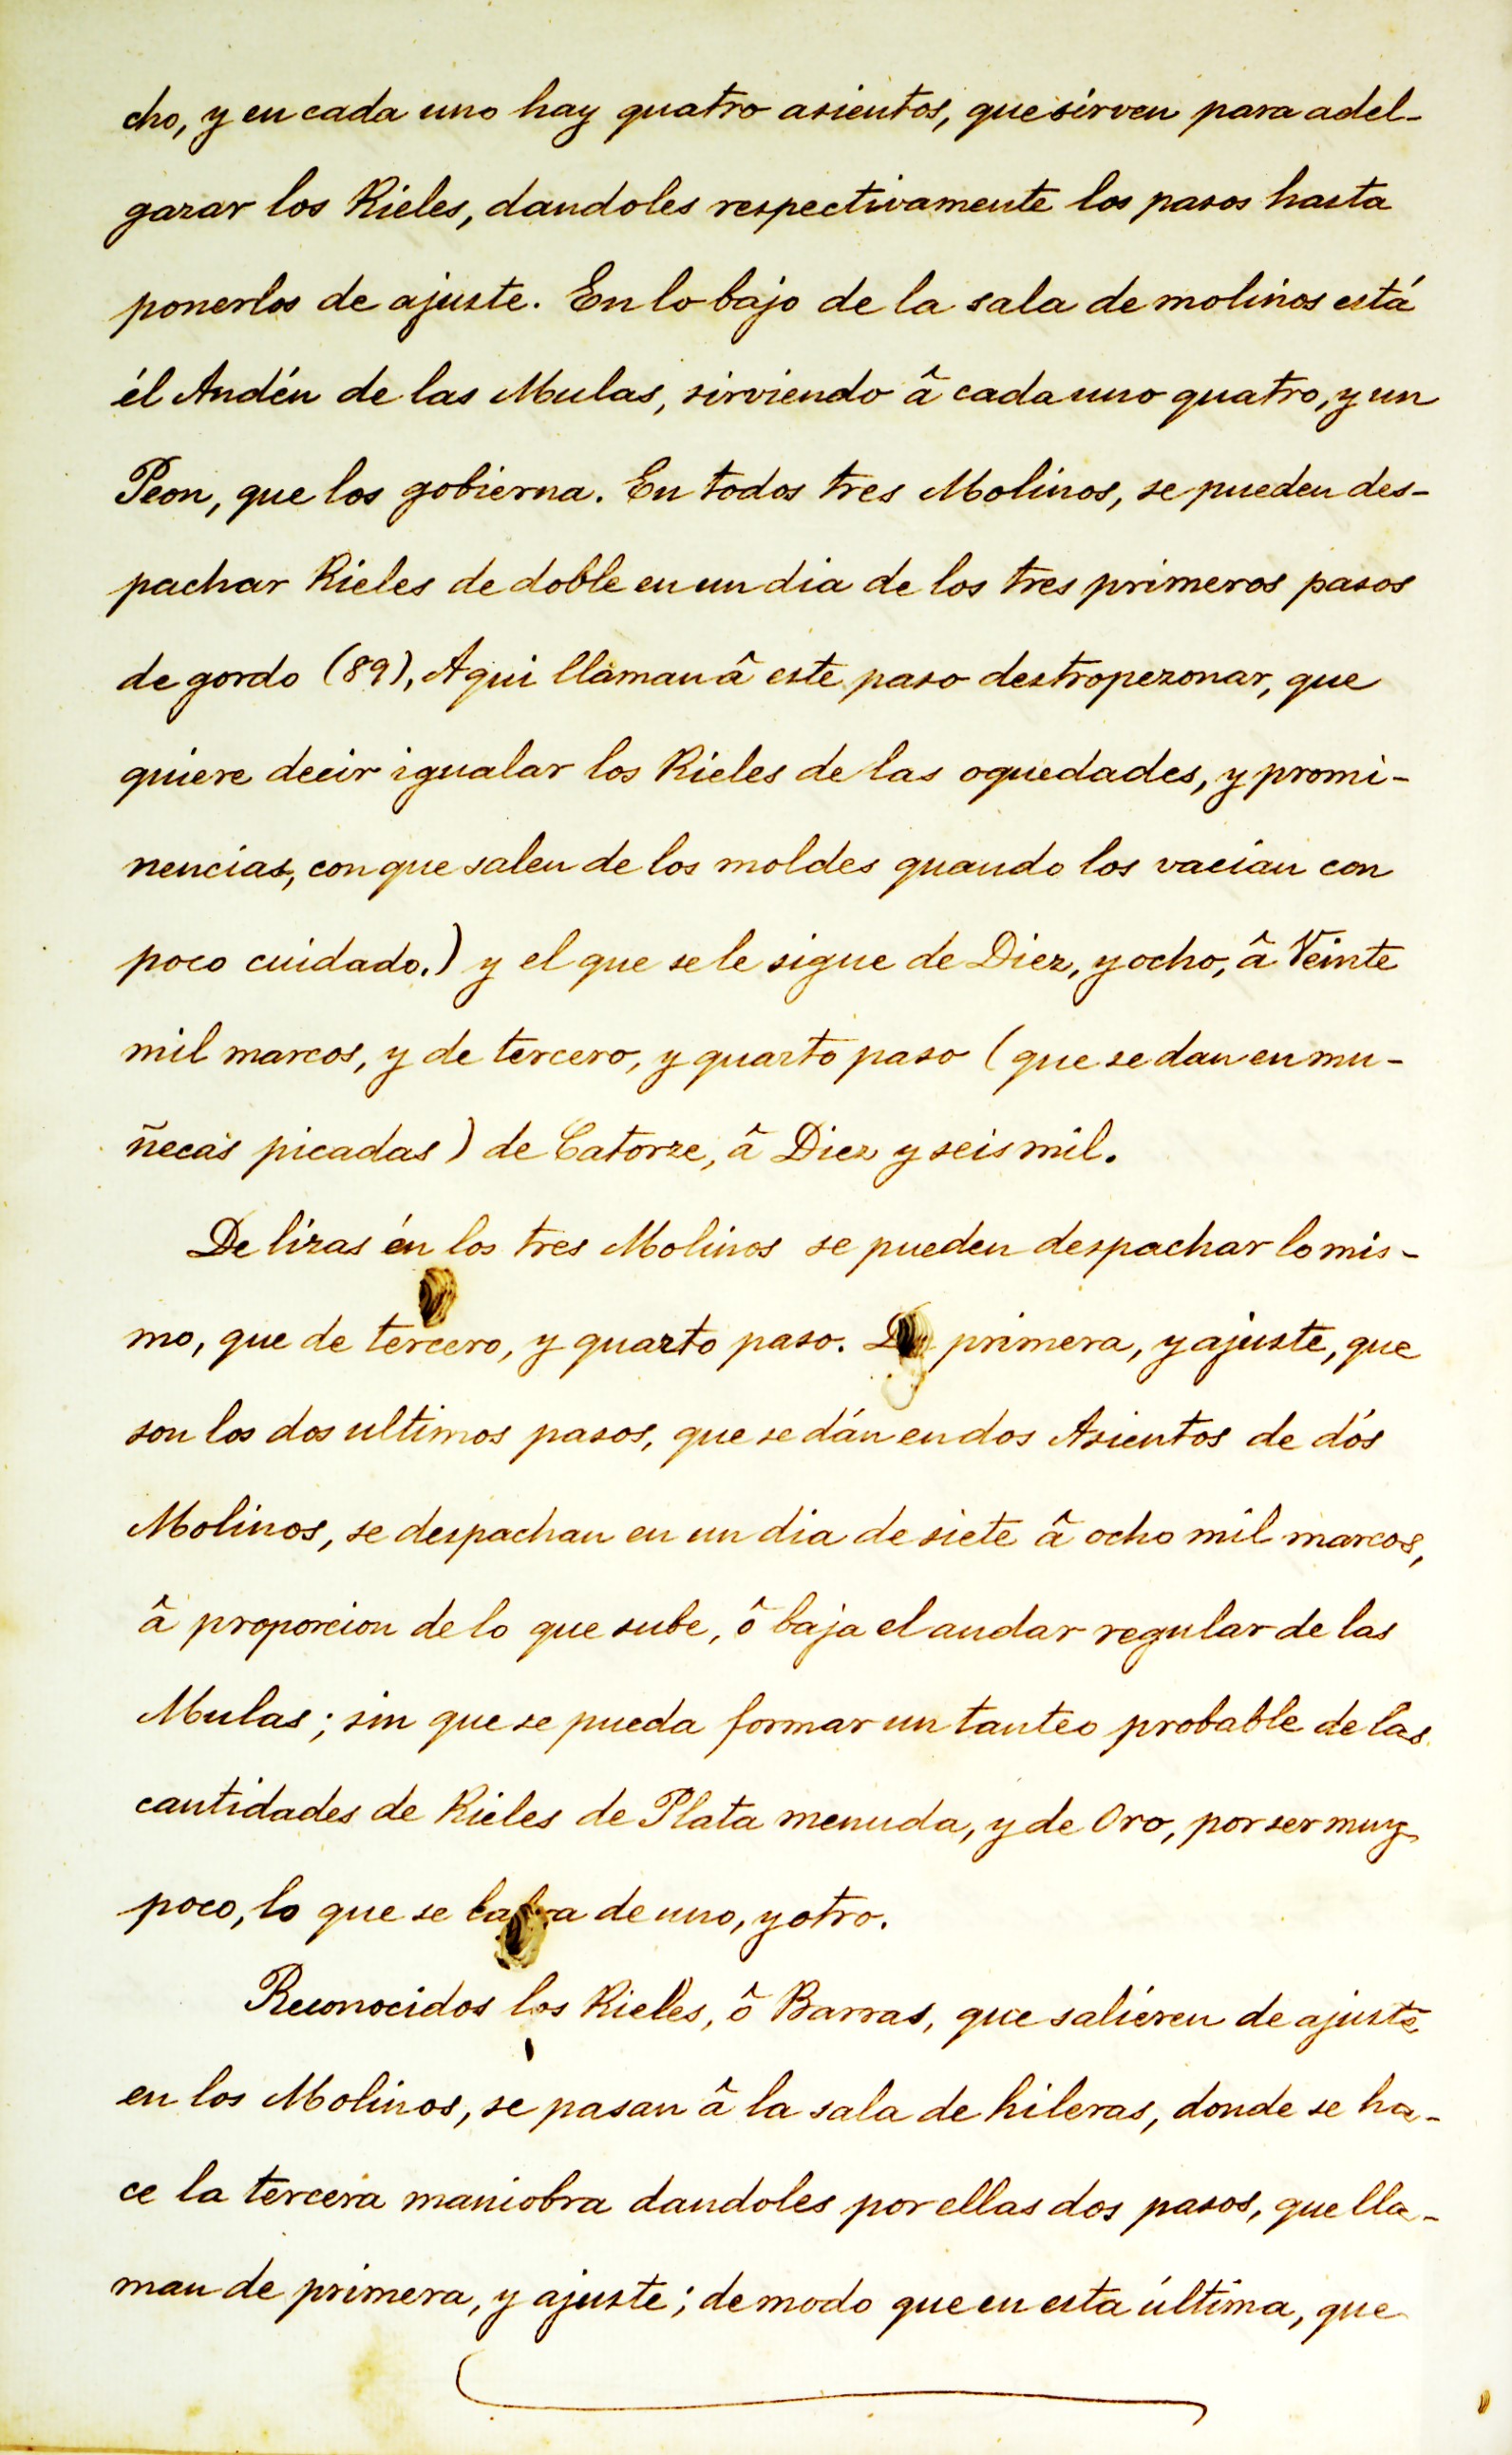 cho, y en cada uno hay quatro asientos, que sirven para adel-
gazar los Rieles, dandoles respectivamente los pasos hasta
ponerlos de ajuste. En lo bajo de la sala de molinos está
él Andén de las Mulas, sirviendo â cada uno quatro, y un
Peon, que los gobierna. En todos tres Molinos, se pueden des-
pachar Rieles de doble en un dia de los tres primeros pasos
de gordo (89), Aqui llaman â este paso destropezonar, que
quiere decir igualar los Rieles de las oquedades, y promi-
nencias, con que salen de los moldes quando los vacian con
poco cuidado.) y el que se le sigue de Diez, y ocho, â Veinte
mil marcos, y de tercero, y quarto paso (que se dan en mu-
ñecas picadas) de Catorze, â Diez y seis mil.
De lizas én los tres Molinos se pueden despachar lo mis-
mo, que de tercero, y quarto paso. primera, y ajuste, que
son los dos ultimos pasos, que se dán en dos Asientos de dós
Molinos, se despachan en un dia de siete â ocho mil marcos,
â proporcion de lo que sube, ô baja el andar regular de las
Mulas; sin que se pueda formar un tanteo probable de las
cantidades de Rieles de Plata menuda, y de Oro, por ser muy
poco, lo que se labra de uno, y otro.
Reconocidos los Rieles, ô Barras, que saliéren de ajuste
en los Molinos, se pasan â la sala de hileras, donde se ha-
ce la tercera maniobra dandoles por ellas dos pasos, que lla-
man de primera, y ajuste; de modo que en esta última, que